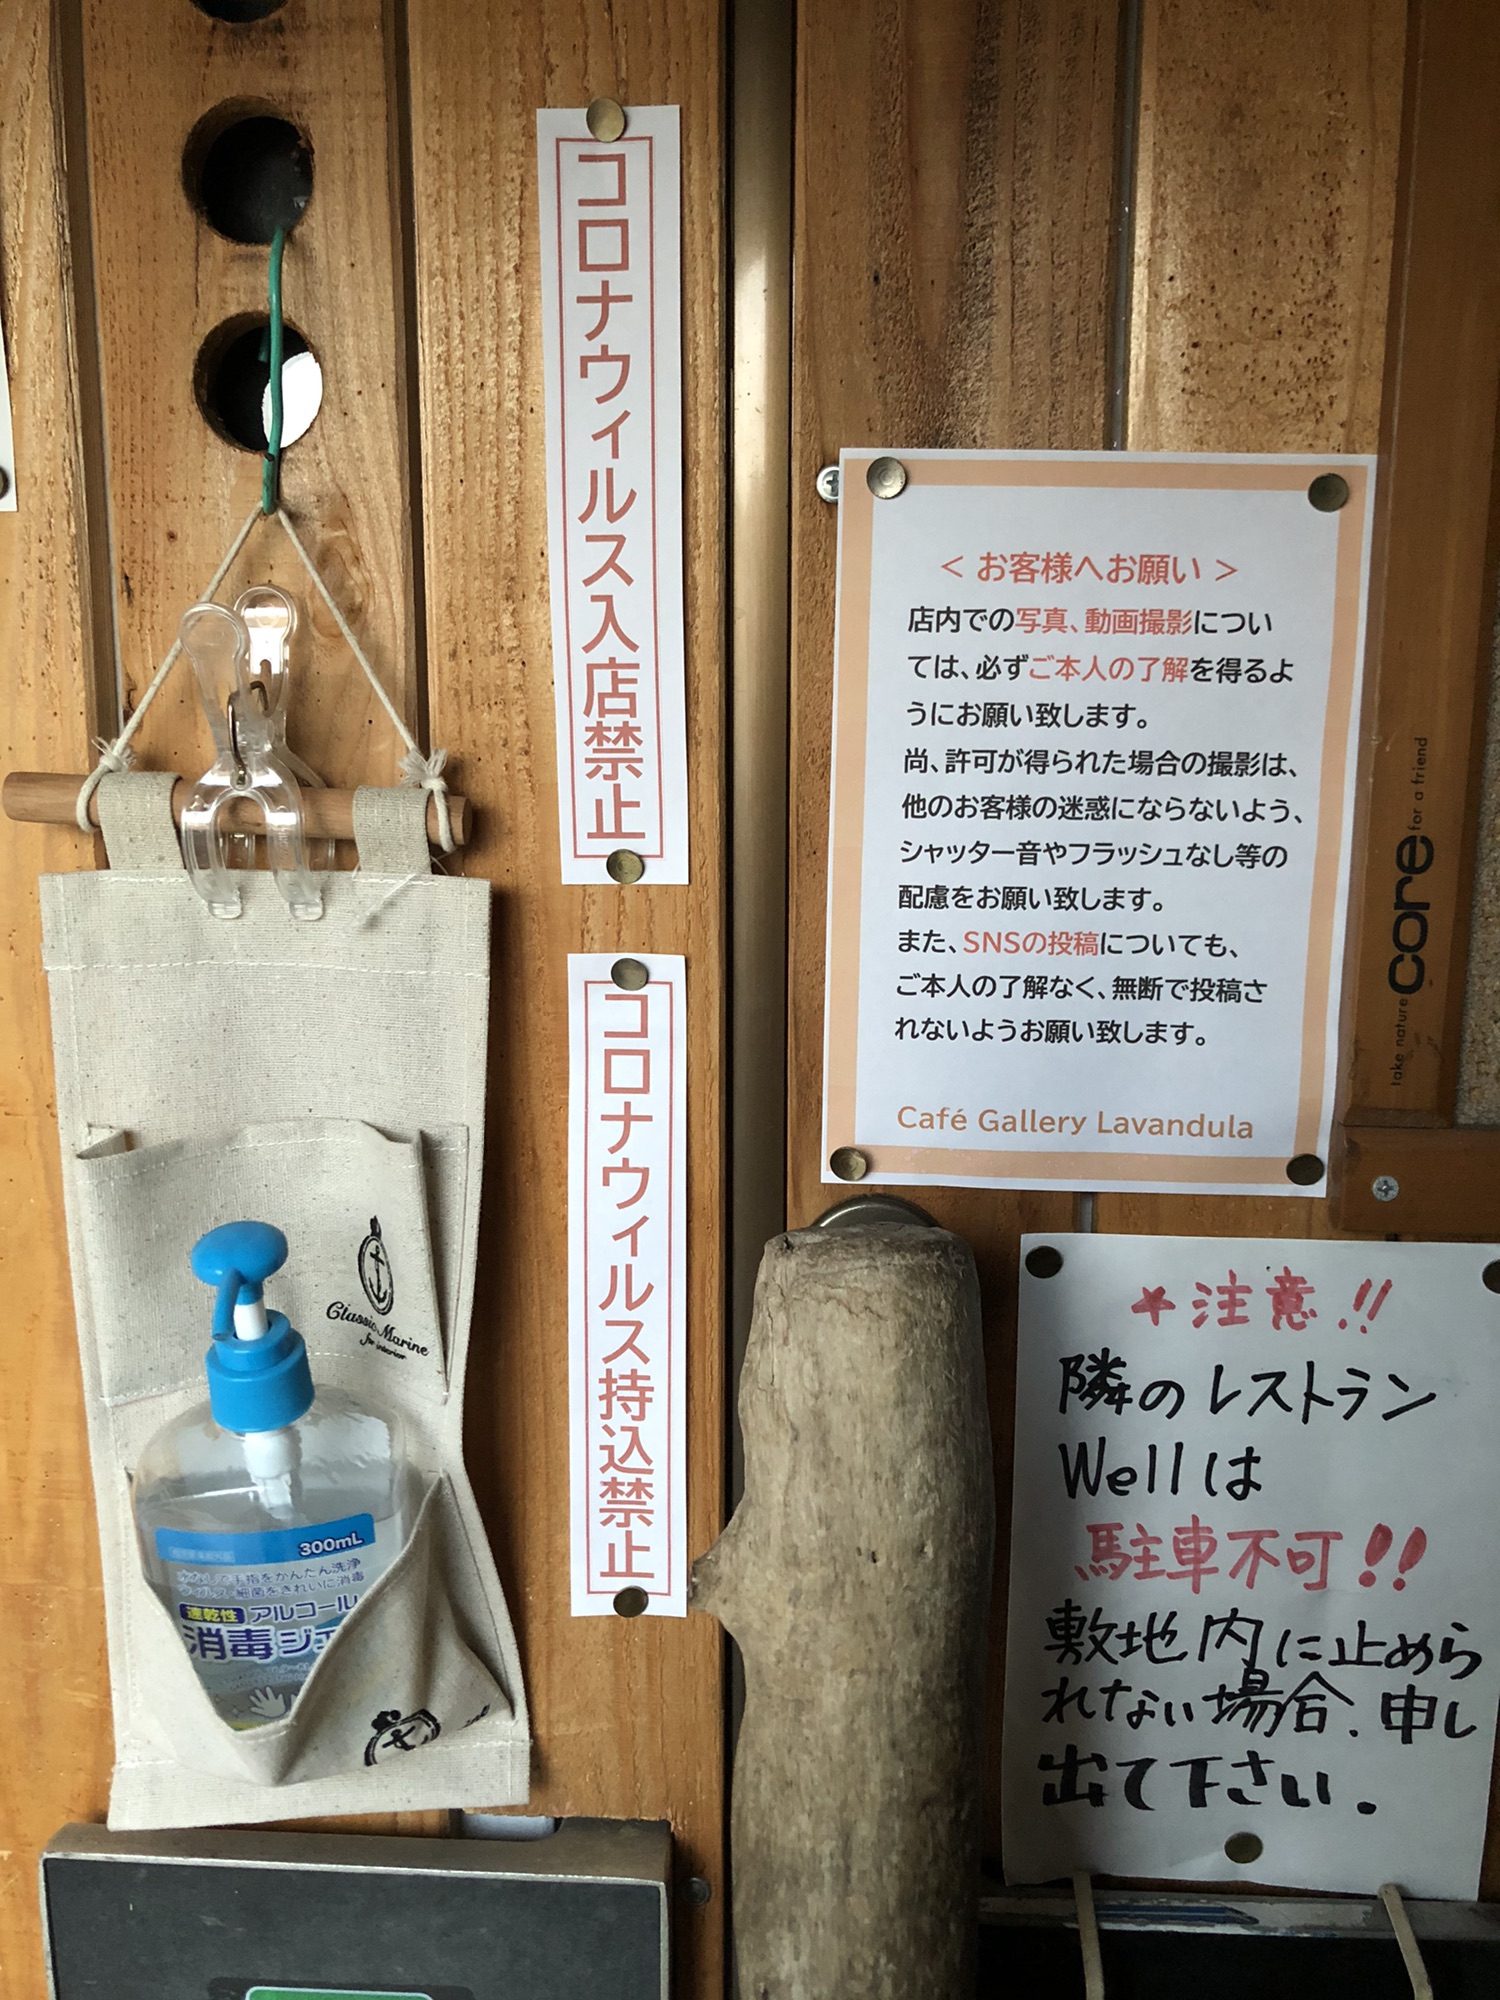 コロナウィルス入店禁止
コロナウィルス持込禁止
＜ お客様へお願い ＞
店内での写真、動画撮影につい
ては、必ずご本人の了解を得るよ
うにお願い致します。
尚、許可が得られた場合の撮影は、
他のお客様の迷惑にならないよう、
シャッター音やフラッシュなし等の
配慮をお願い致します。
また、SNSの投稿についても、
ご本人の了解なく、無断で投稿さ
れないようお願い致します。
Café Gallery Lavandula
take nature core for a friend
★注意!!
隣のレストラン
Wellは
駐車不可!!
敷地内に止めら
れない場合、申し
出て下さい。
Classic Marine
for interior
300mL
水なしで手指をかんたん洗浄
ウィルス、細菌をきれいに消毒
速乾性 アルコール
消毒ジェ